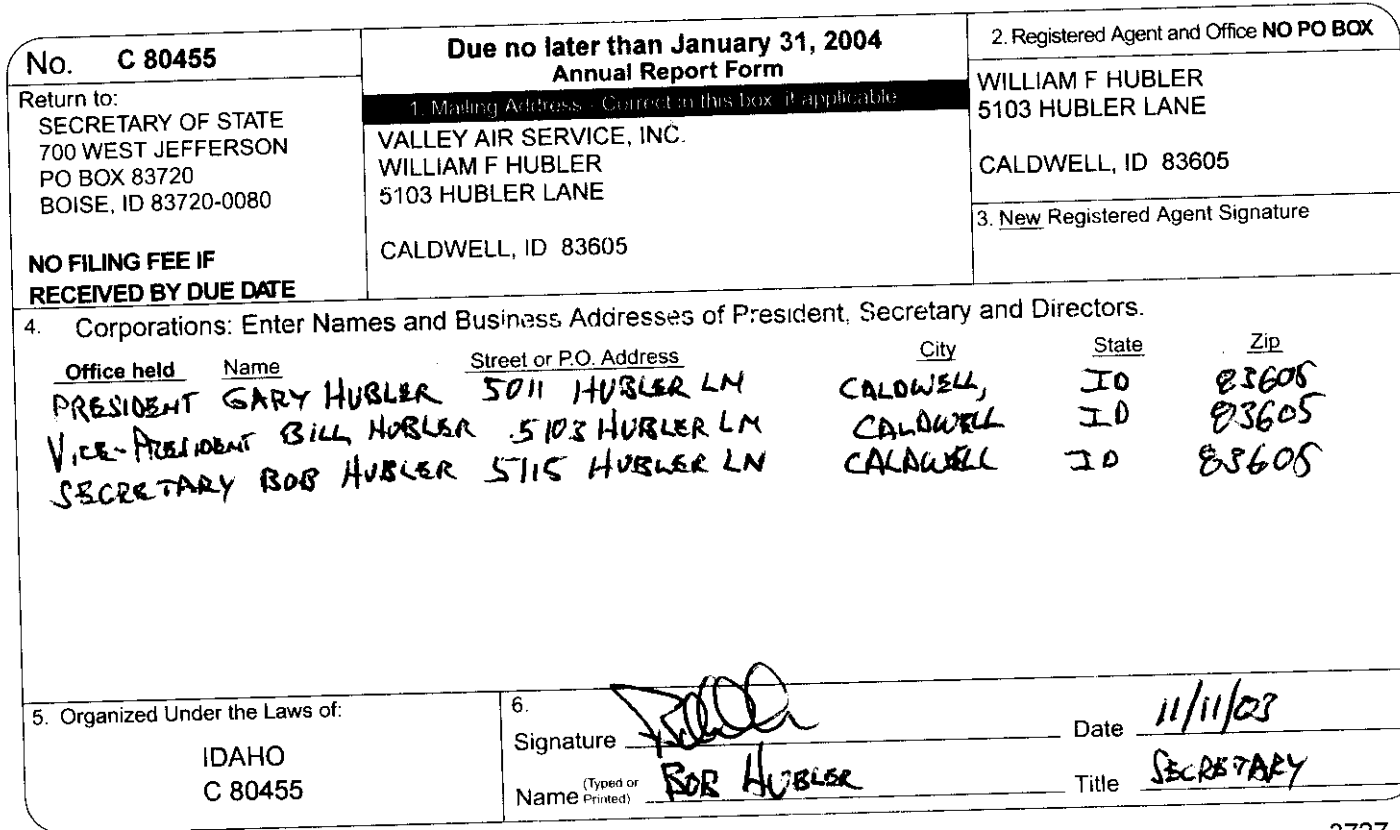 No. C 80455
Return to:
SECRETARY OF STATE
700 WEST JEFFERSON
PO BOX 83720
BOISE, ID 83720-0080
NO FILING FEE IF
RECEIVED BY DUE DATE
Due no later than January 31, 2004
Annual Report Form
1. Mailing Address - Correct in this box if applicable
VALLEY AIR SERVICE, INC.
WILLIAM F HUBLER
5103 HUBLER LANE
CALDWELL, ID 83605
2. Registered Agent and Office NO PO BOX
WILLIAM F HUBLER
5103 HUBLER LANE
CALDWELL, ID 83605
3. New Registered Agent Signature
4. Corporations: Enter Names and Business Addresses of President, Secretary and Directors.
Office held Name Street or P.O. Address City State Zip
PRESIDENT GARY HUBLER 5011 HUBLER LN CALDWELL, ID 83605
VICE-PRESIDENT BILL HUBLER 5103 HUBLER LN CALDWELL ID 83605
SECRETARY BOB HUBLER 5115 HUBLER LN CALDWELL ID 83605
5. Organized Under the Laws of:
IDAHO
C 80455
6.
Signature
Date 11/11/03
Name (Typed or Printed) BOB HUBLER
Title SECRETARY